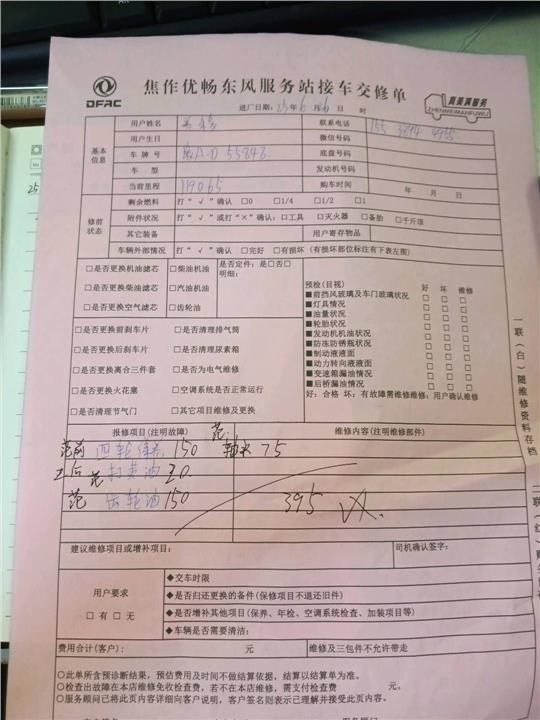 DFAC
焦作优畅东风服务站接车交修单
真美满服务
ZHENMEIMANFUWU
进厂日期: 23年 6月 日 时
基本信息
用户姓名 联系电话
用户生日 微信号码
车牌号 55848 底盘号码
车型 发动机号码
当前里程 119065 购车时间 年 月 日
修前状态
剩余燃料 打“√”确认 □0 □1/4 □1/2 □1
附件状况 打“√”或打“×”确认: □工具 □灭火器 □备胎 □千斤顶
其它装备 用户寄存物品
车辆外部情况 打“√”确认 □完好 □有损坏 (有损坏部位标注有下表左图)
□是否更换机油滤芯 □柴油机油 是否定件: 是□否□
明细:
□是否更换柴油滤芯 □汽油机油
□是否更换空气滤芯 □齿轮油
□是否更换前刹车片 □是否清理排气筒
□是否更换后刹车片 □是否清理尿素箱
□是否更换离合三件套 □是否为电气维修
□是否更换火花塞 □空调系统是否正常运行
□是否清理节气门 □其它项目维修及更换
预检(目视) 好 坏 维修
■前挡风玻璃及车门玻璃状况 □ □ □
■灯具情况 □ □ □
■油量状况 □ □ □
■轮胎状况 □ □ □
■发动机机油状况 □ □ □
■防冻防锈瓶状况 □ □ □
■制动液液面 □ □ □
■动力转向液液面 □ □ □
■变速箱漏油情况 □ □ □
■后桥漏油情况 □ □ □
好: 合格 坏: 有故障需维修维修: 用户确认维修
一联(白)随维修资料存档
报修项目(注明故障) 维修内容(注明维修部件)
四轮保养 150 75
打黄油 20
齿轮油 150 395
建议维修项目或增补项目: 司机确认签字:
用户要求
□有 □无
◆交车时限
◆是否归还更换的备件(保修项目不退还旧件)
◆是否增补其他项目(保养、年检、空调系统检查、加装项目等)
◆车辆是否需要清洁:
费用合计(客户): 元 维修及三包件不允许带走
○此单所含预诊断结果, 预估费用及时间不做结算依据, 结算以结算单为准。
○检查出故障在本店维修免收检查费, 若不在本店维修, 需支付检查费 元。
○服务顾问已将此页内容详细向客户说明, 客户签名则表示已理解并接受此页内容。